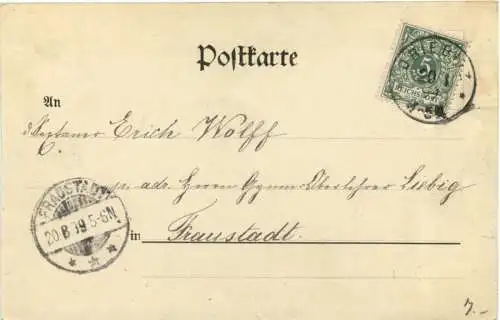 Postkarte
5
An
Sextaner Erich Wolff
p. adr. Herrn Gymn. Oberlehrer Liebig
in Fraustadt.
FRAUSTADT
20.8.99.5-6N.
7.-